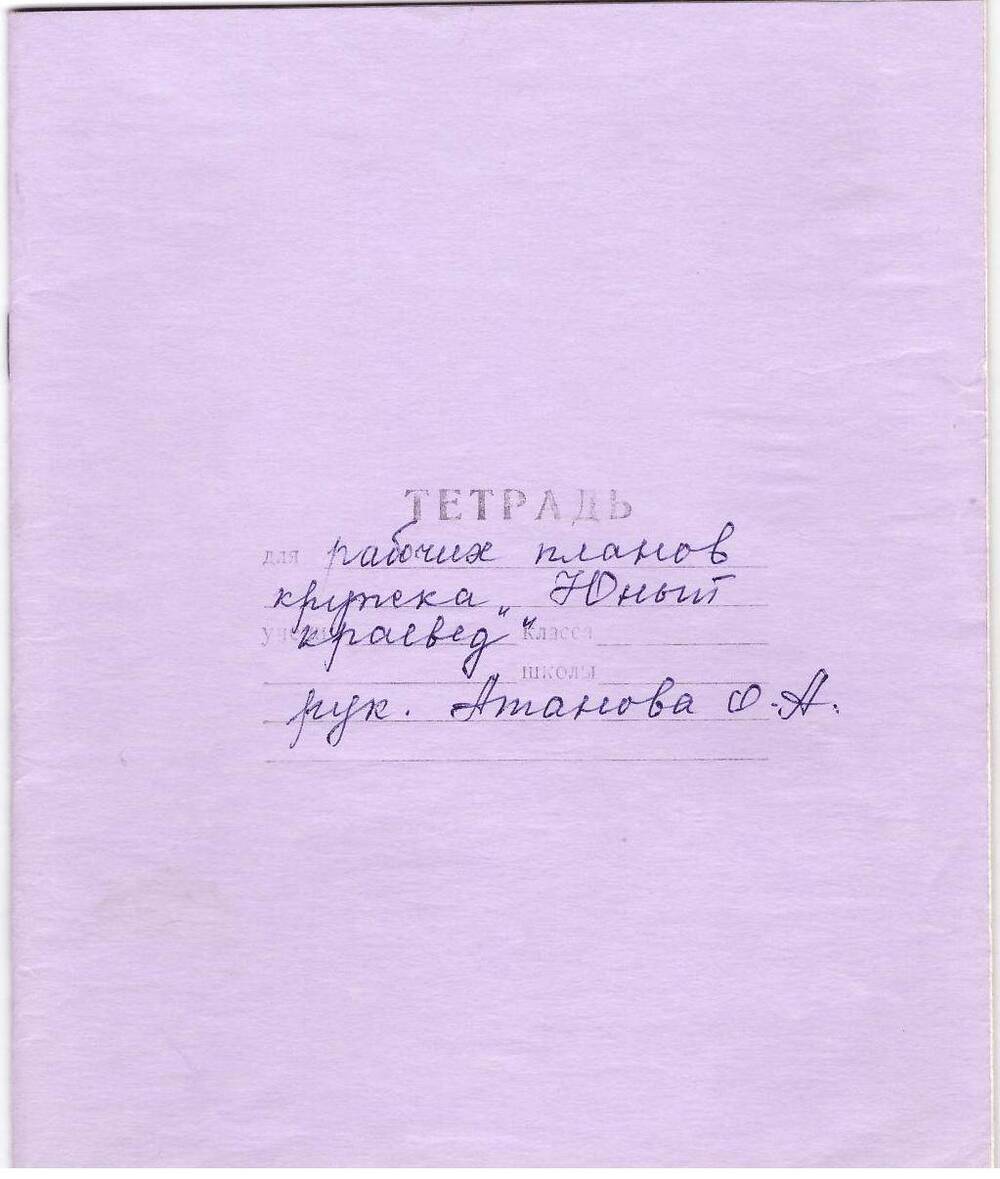 ТЕТРАДЬ
для рабочих планов
кружка „Юный
краевед" класса
школы
рук. Атанова О.А.